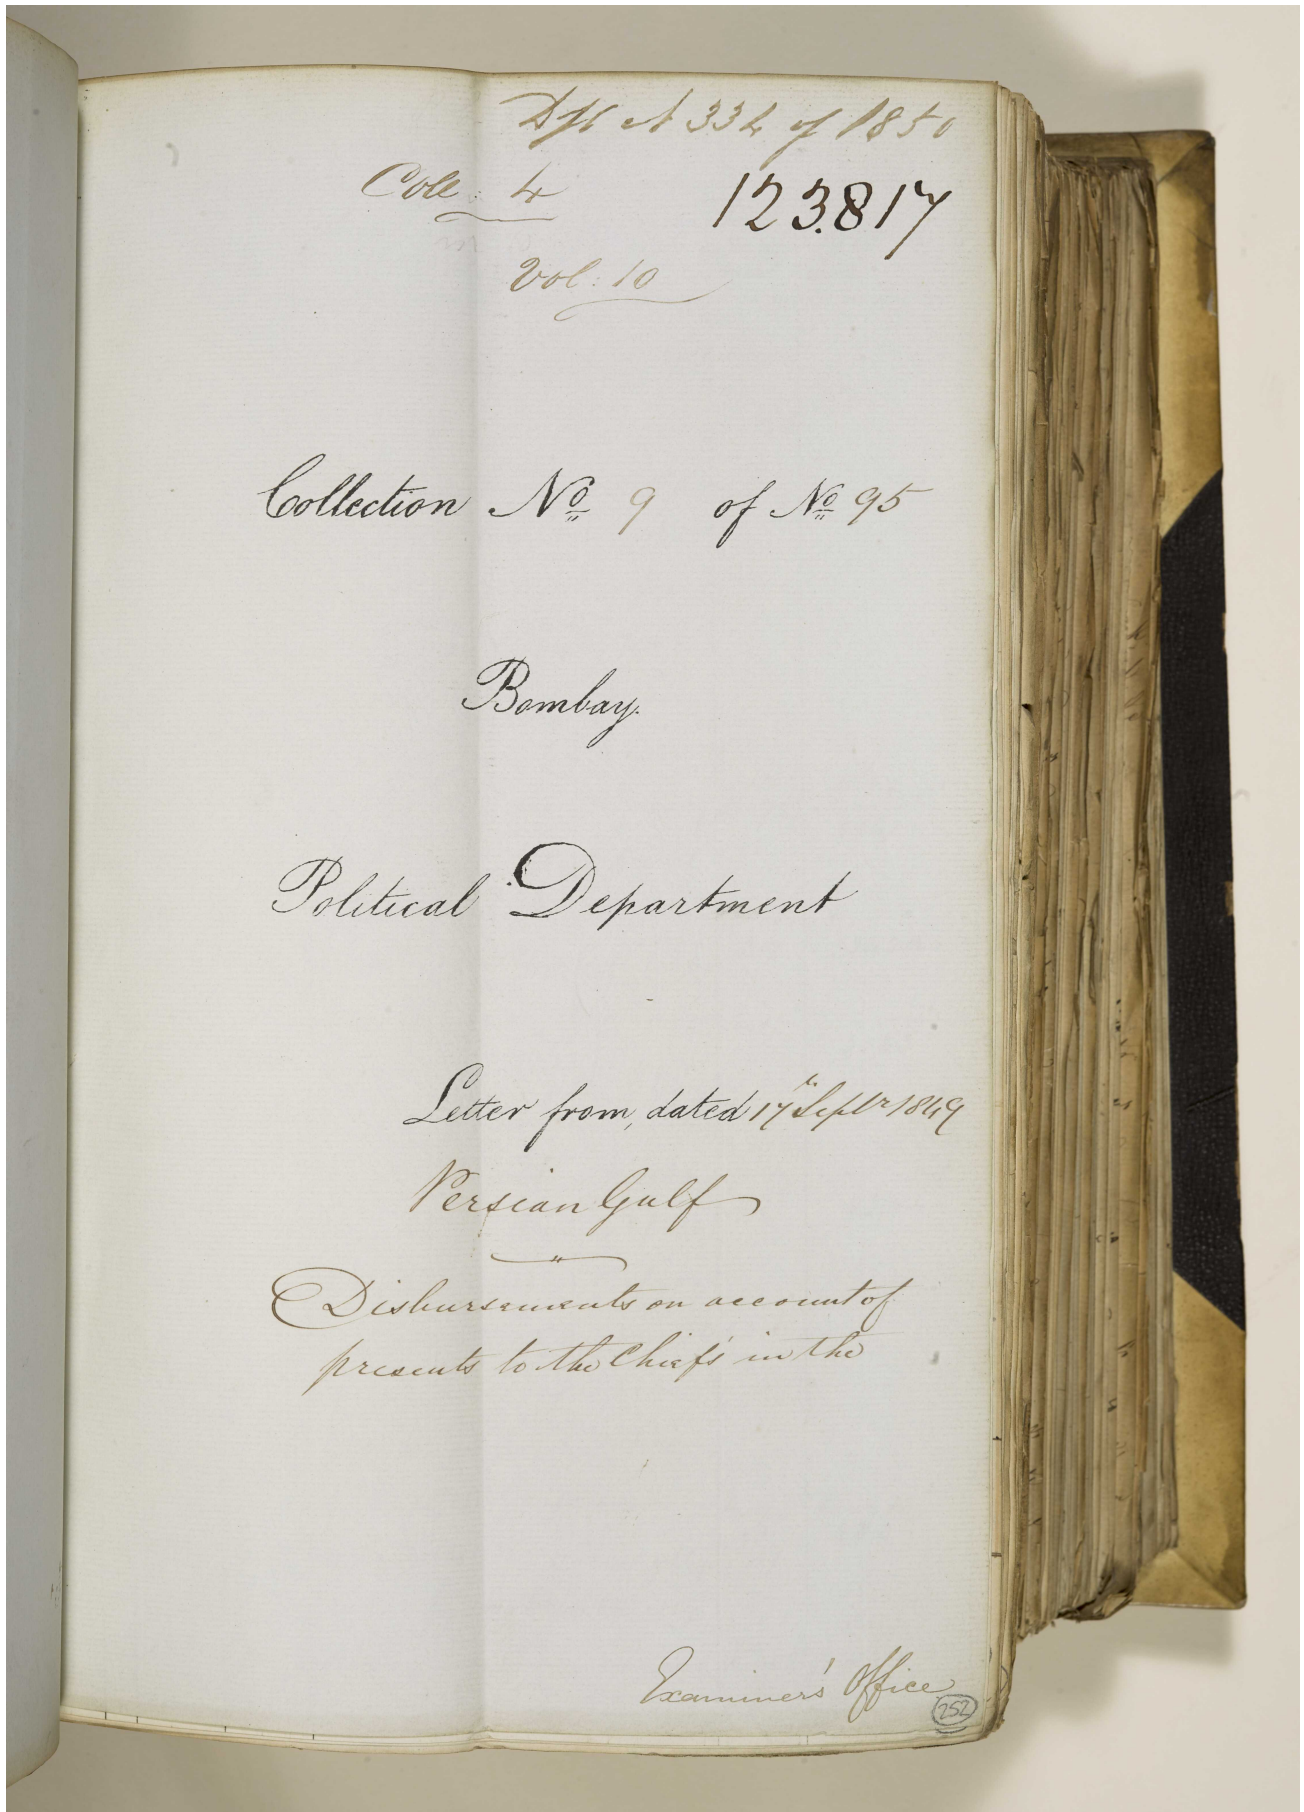 Dft N 334 of 1850
Coll: 4
123.817
Vol: 10
Collection No 9 of No 95
Bombay.
Political Department
Letter from, dated 17th Septr 1849
Persian Gulf
Disbursements on account of
presents to the Chiefs in the
Examiner's Office
252